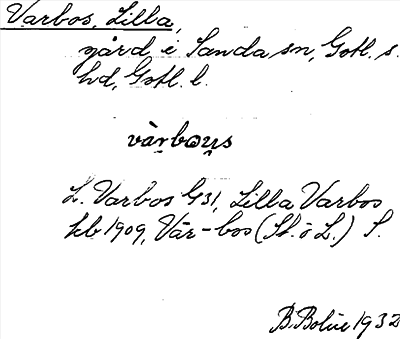 Varbos, Lilla,
gård i Sanda sn, Gotl. s.
hd, Gotl. l.
vàrbous
L. Varbos G31, Lilla Varbos
kb 1909, Vär-bos (St. o L.) S.
B. Bolin 1932